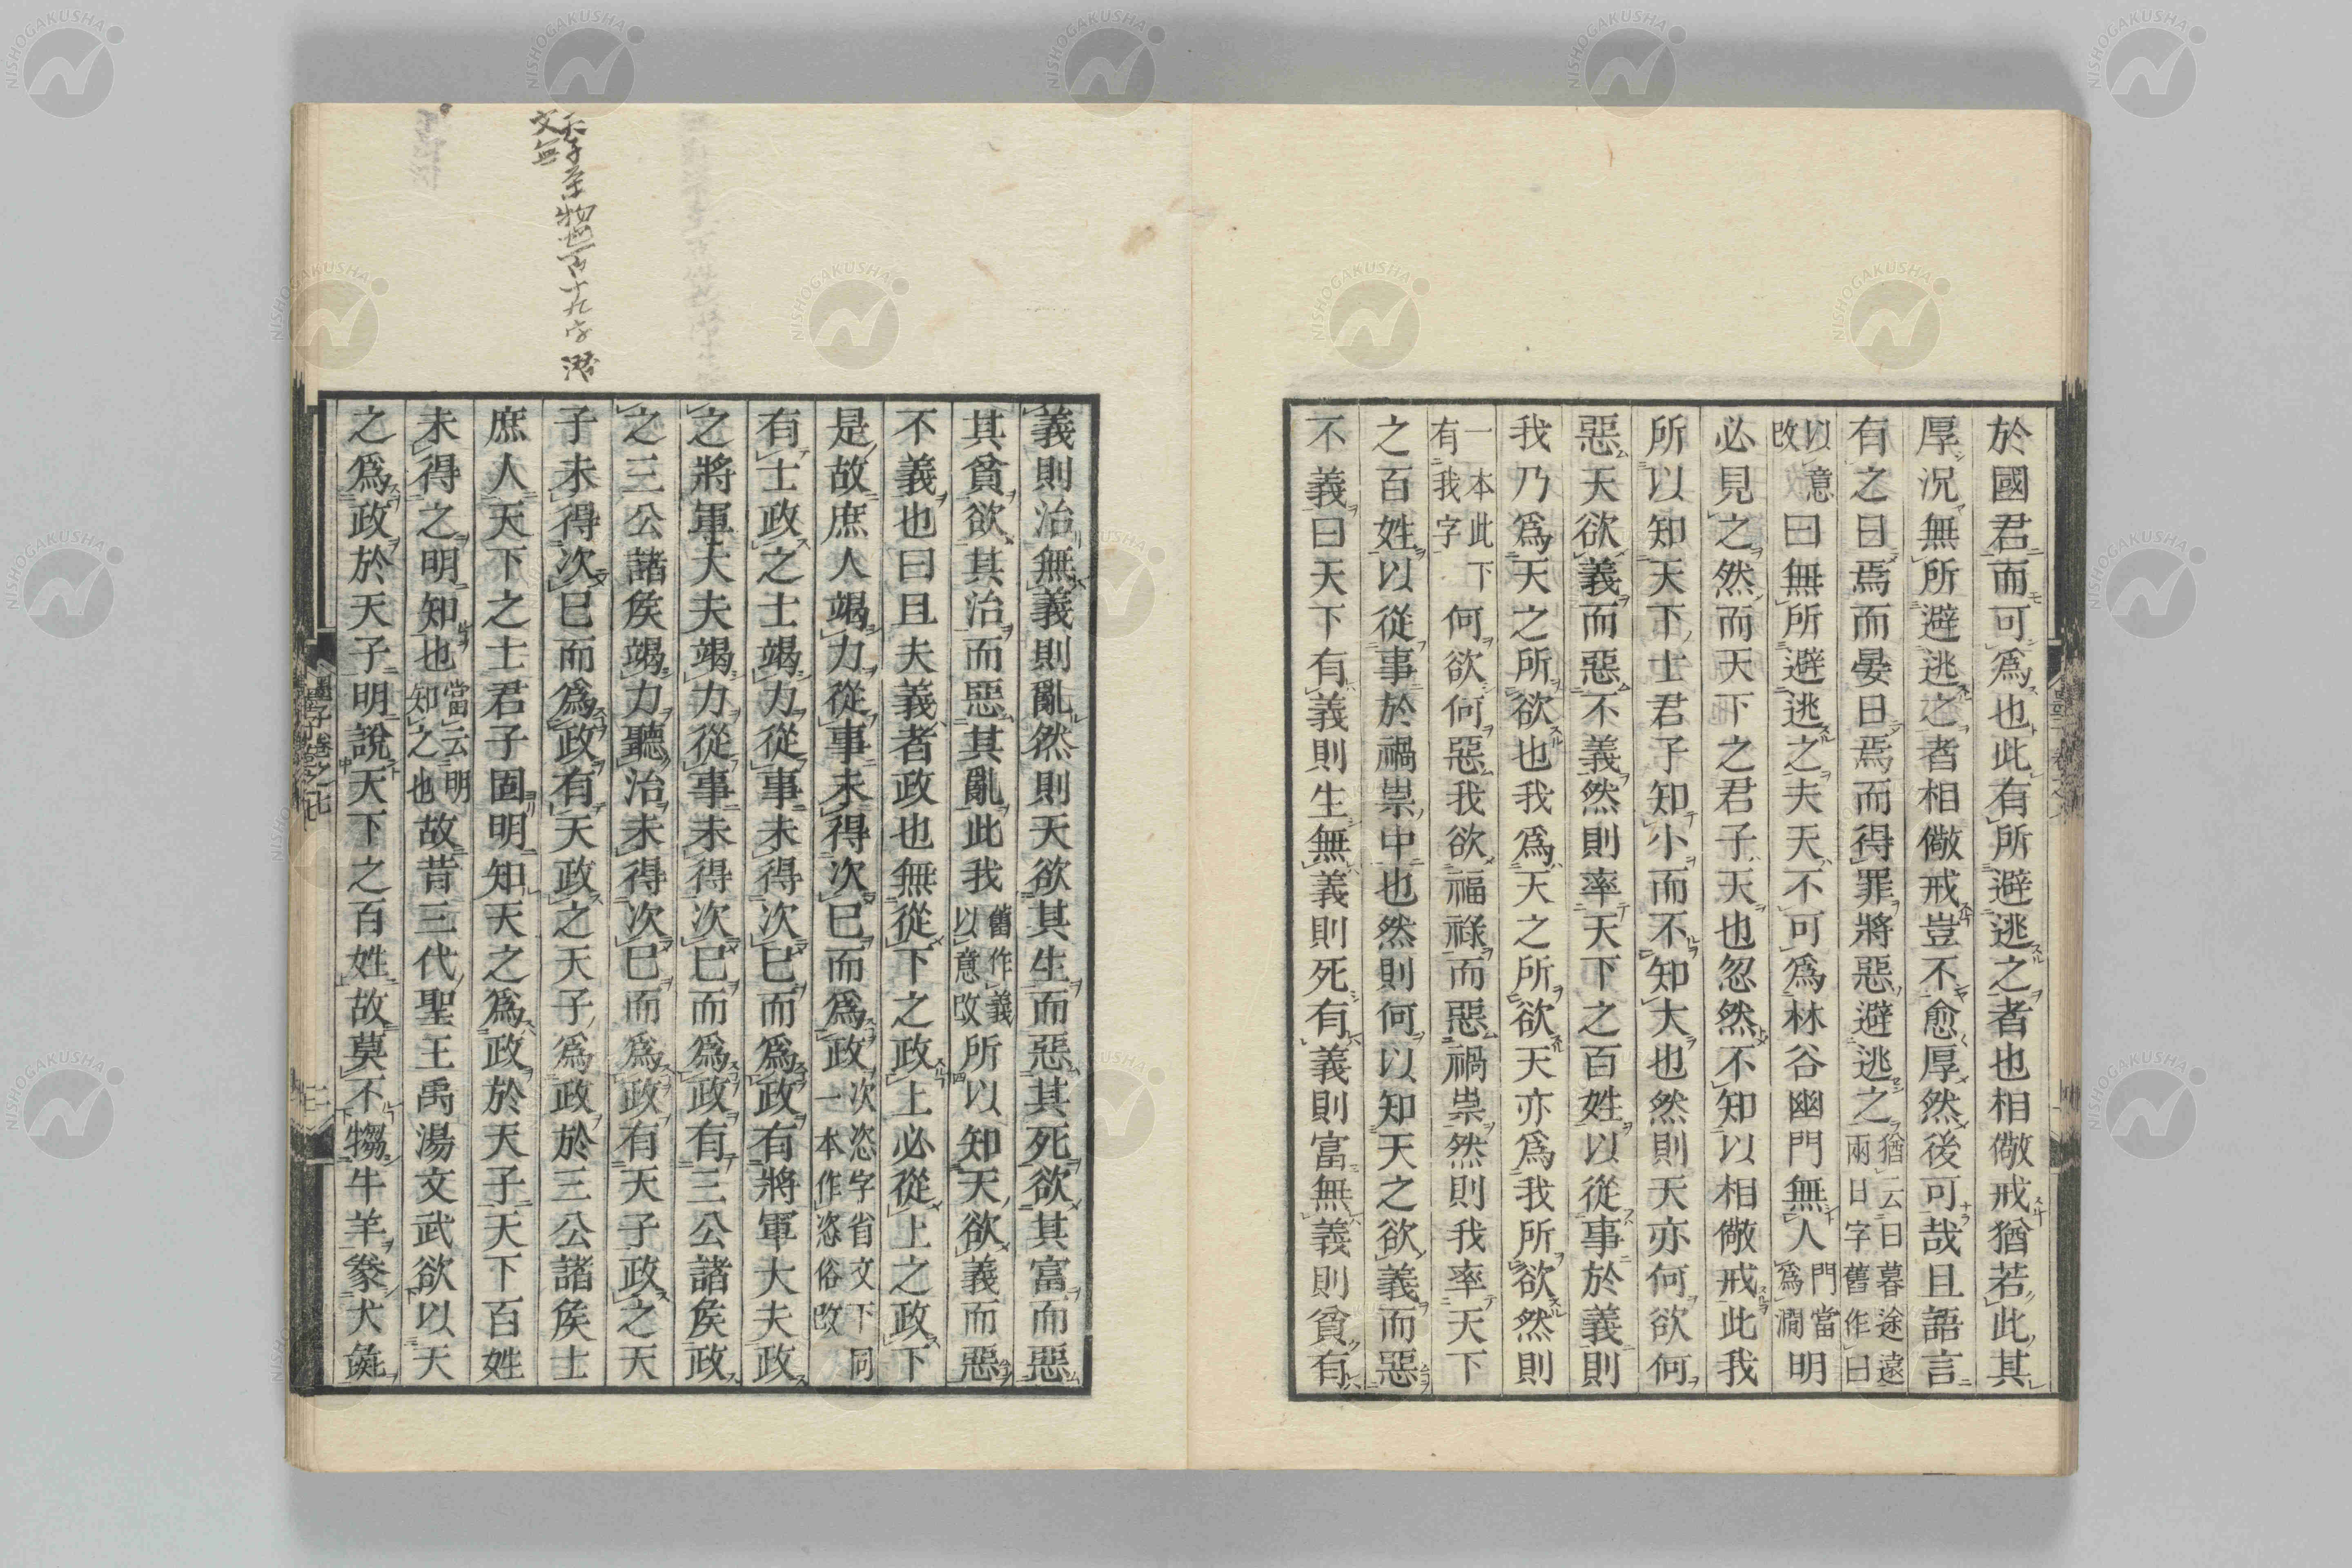 於國君而可爲也此有所避逃之者也相儆戒猶若此其
厚況無所避逃之者相儆戒豈不愈厚然後可哉且語言
有之曰焉而晏日焉而得罪將惡避逃之猶云日暮途遠兩日字舊作曰
以意改曰無所避逃之夫天不可爲林谷幽門無人門當爲澗明
必見之然而天下之君子天也忽然不知以相儆戒此我
所以知天下士君子知小而不知大也然則天亦何欲何
惡天欲義而惡不義然則率天下之百姓以從事於義則
我乃爲天之所欲也我爲天之所欲天亦爲我所欲然則
一本此下有我字何欲何惡我欲福祿而惡禍祟然則我率天下
之百姓以從事於禍祟中也然則何以知天之欲義而惡
不義曰天下有義則生無義則死有義則富無義則貧有
義則治無義則亂然則天欲其生而惡其死欲其富而惡
其貧欲其治而惡其亂此我舊作義以意改所以知天欲義而惡
不義也曰且夫義者政也無從下之政上必從上之政下
是故庶人竭力從事未得次已而爲政次恣字省文下同一本作恣俗改
有士政之士竭力從事未得次已而爲政有將軍大夫政
之將軍大夫竭力從事未得次已而爲政有三公諸矦政
之三公諸矦竭力聽治未得次已而爲政有天子政之天
子未得次已而爲政有天政之天子爲政於三公諸矦士
庶人天下之士君子固明知天之爲政於天子天下百姓
未得之明知也當云明知之也故昔三代聖王禹湯文武欲以天
之爲政於天子明說天下之百姓故莫不犓牛羊豢犬彘
墨子卷之七
三
NISHOGAKUSHA